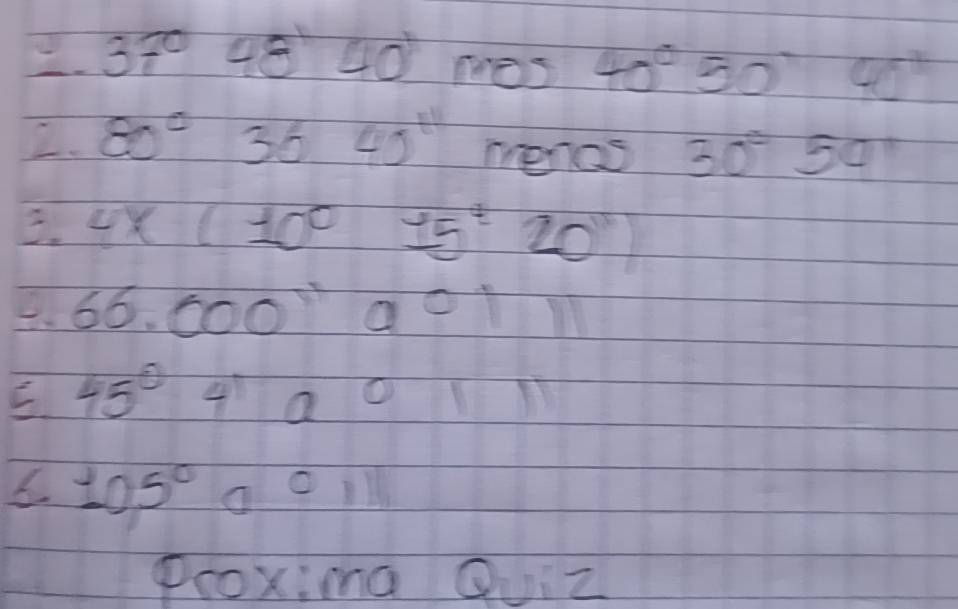 1. 37° 48' 40' mas 40° 50' 40"
2. 80° 35 40" menos 30° 50'
3. 4x (10° 15' 20")
4. 66.600" a ° ' "
5. 45° 4' a ° ' "
6. 10,5° a ° ' "
Proxima Quiz